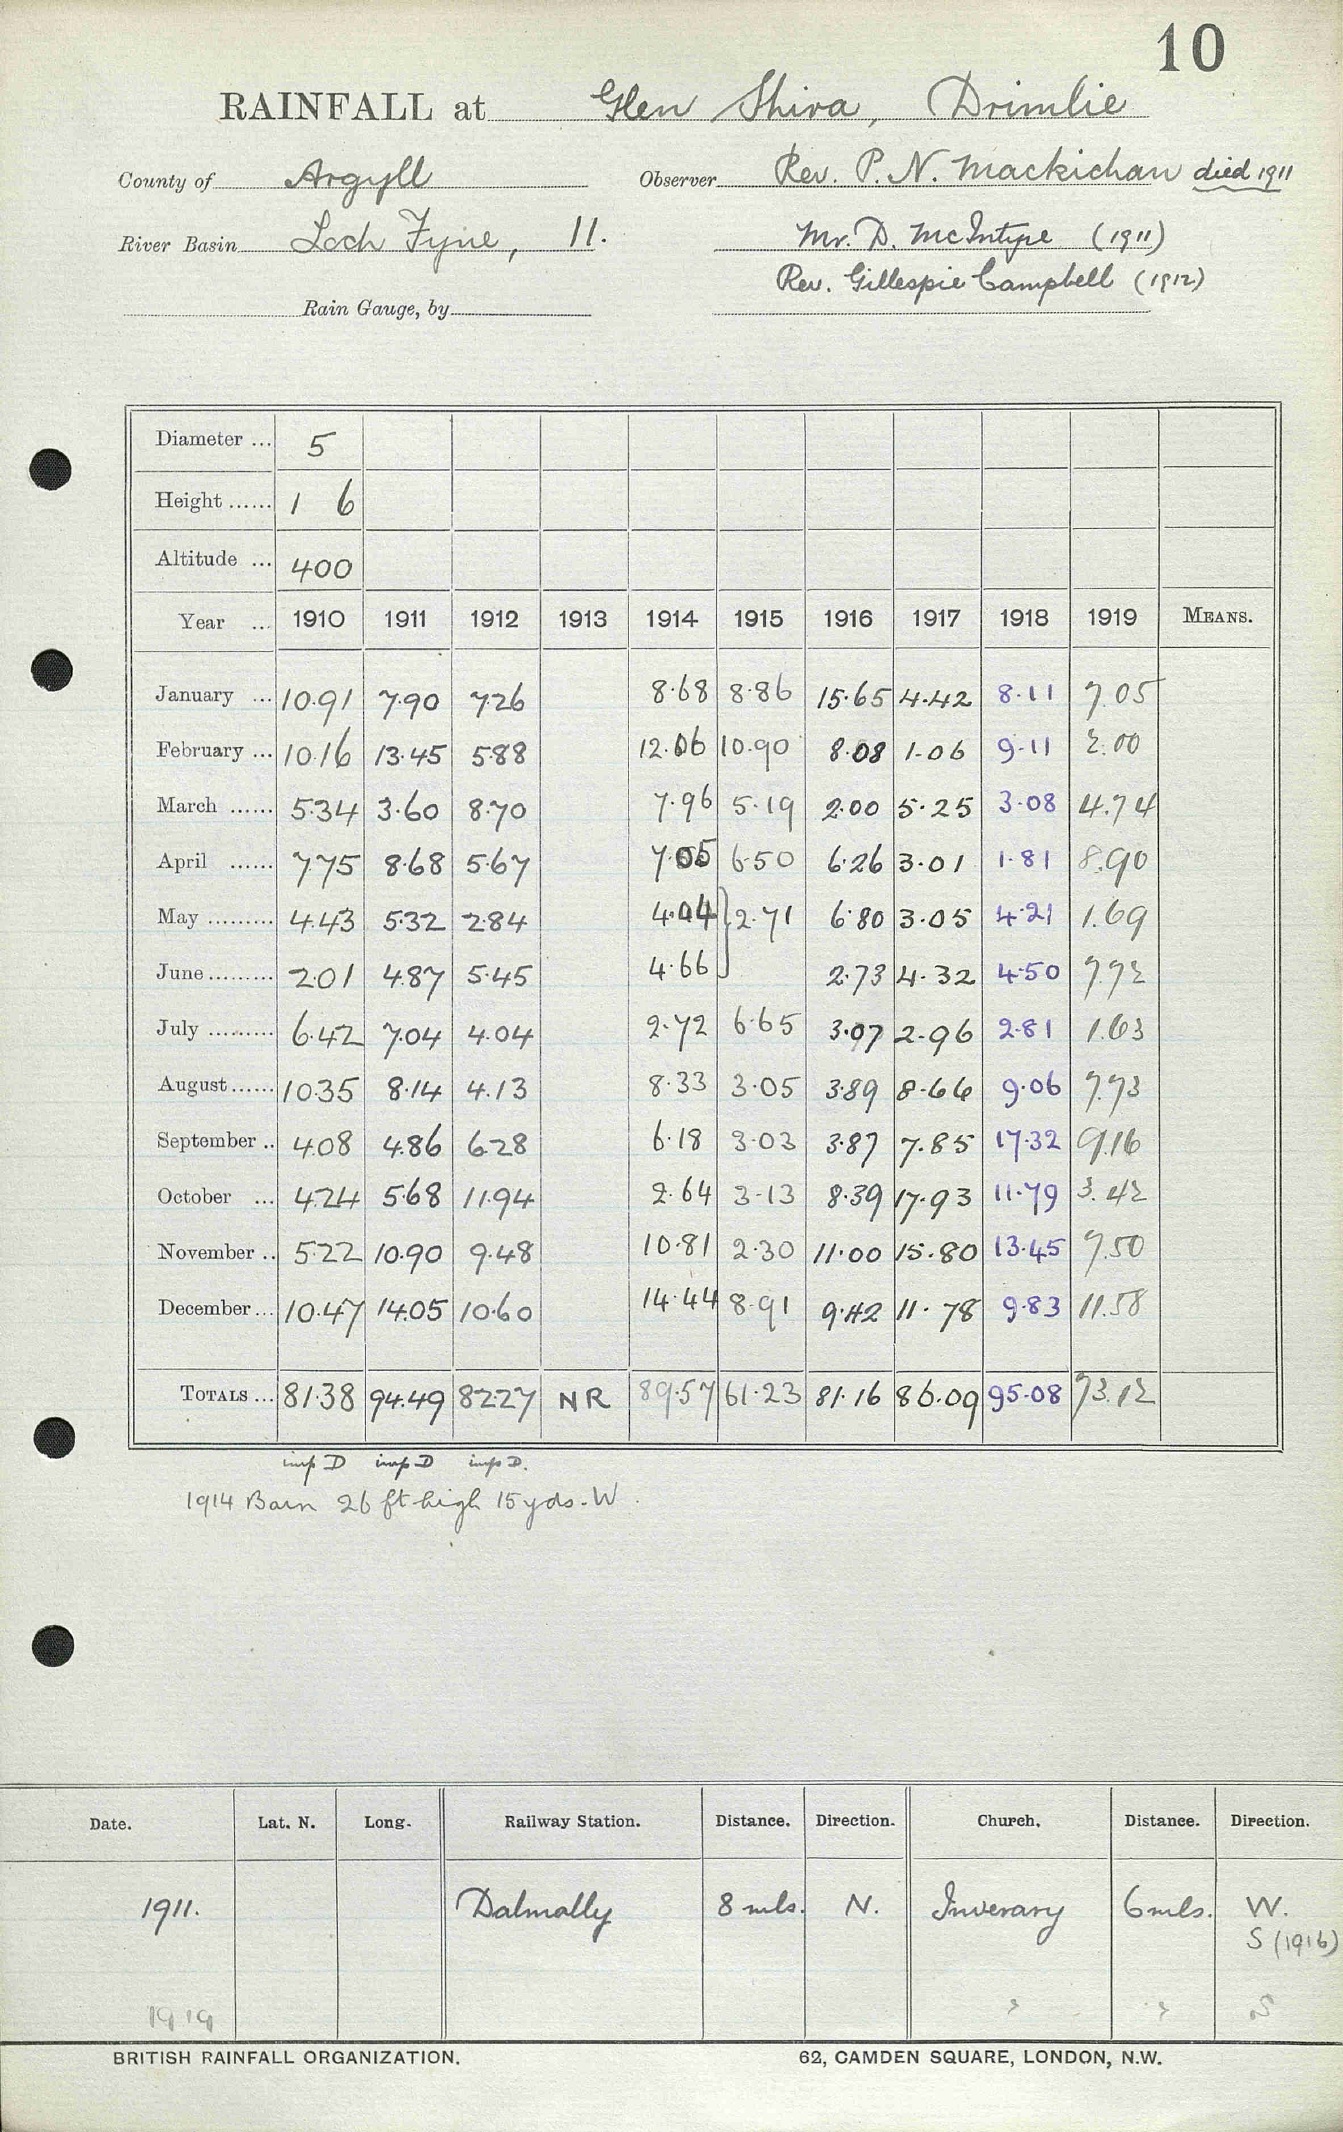 10
RAINFALL at Glen Shira, Drimlie
County of Argyll Observer Rev. P. N. Mackichan died 1911
River Basin Loch Fyne, 11. Mr. D. McIntyre (1911)
Rev. Gillespie Campbell (1912)
Rain Gauge, by
Diameter ... 5
Height ...... 1 6
Altitude ... 400
Year ... 1910 1911 1912 1913 1914 1915 1916 1917 1918 1919 MEANS.
January ... 10.91 7.90 7.26 8.68 8.86 15.65 4.42 8.11 7.05
February ... 10.16 13.45 5.88 12.06 10.90 8.08 1.06 9.11 2.00
March ...... 5.34 3.60 8.70 7.96 5.19 2.00 5.25 3.08 4.74
April ...... 7.75 8.68 5.67 7.05 6.50 6.26 3.01 1.81 8.90
May ......... 4.43 5.32 2.84 4.04 } 2.71 6.80 3.05 4.21 1.69
June ......... 2.01 4.87 5.45 4.66 2.73 4.32 4.50 7.72
July ......... 6.42 7.04 4.04 2.72 6.65 3.07 2.96 2.81 1.63
August ...... 10.35 8.14 4.13 8.33 3.05 3.89 8.66 9.06 7.73
September .. 4.08 4.86 6.28 6.18 3.03 3.87 7.85 17.32 9.16
October ... 4.24 5.68 11.94 2.64 3.13 8.39 17.93 11.79 3.42
November .. 5.22 10.90 9.48 10.81 2.30 11.00 15.80 13.45 7.50
December ... 10.47 14.05 10.60 14.44 8.91 9.42 11.78 9.83 11.58
TOTALS ... 81.38 94.49 82.27 NR 89.57 61.23 81.16 86.09 95.08 73.12
imp D imp D imp D.
1914 Barn 26 ft high 15 yds. W.
Date. Lat. N. Long. Railway Station. Distance. Direction. Church. Distance. Direction.
1911. Dalmally 8 mls. N. Inverary 6 mls. W.
S (1916)
1919 " " S
BRITISH RAINFALL ORGANIZATION. 62, CAMDEN SQUARE, LONDON, N.W.